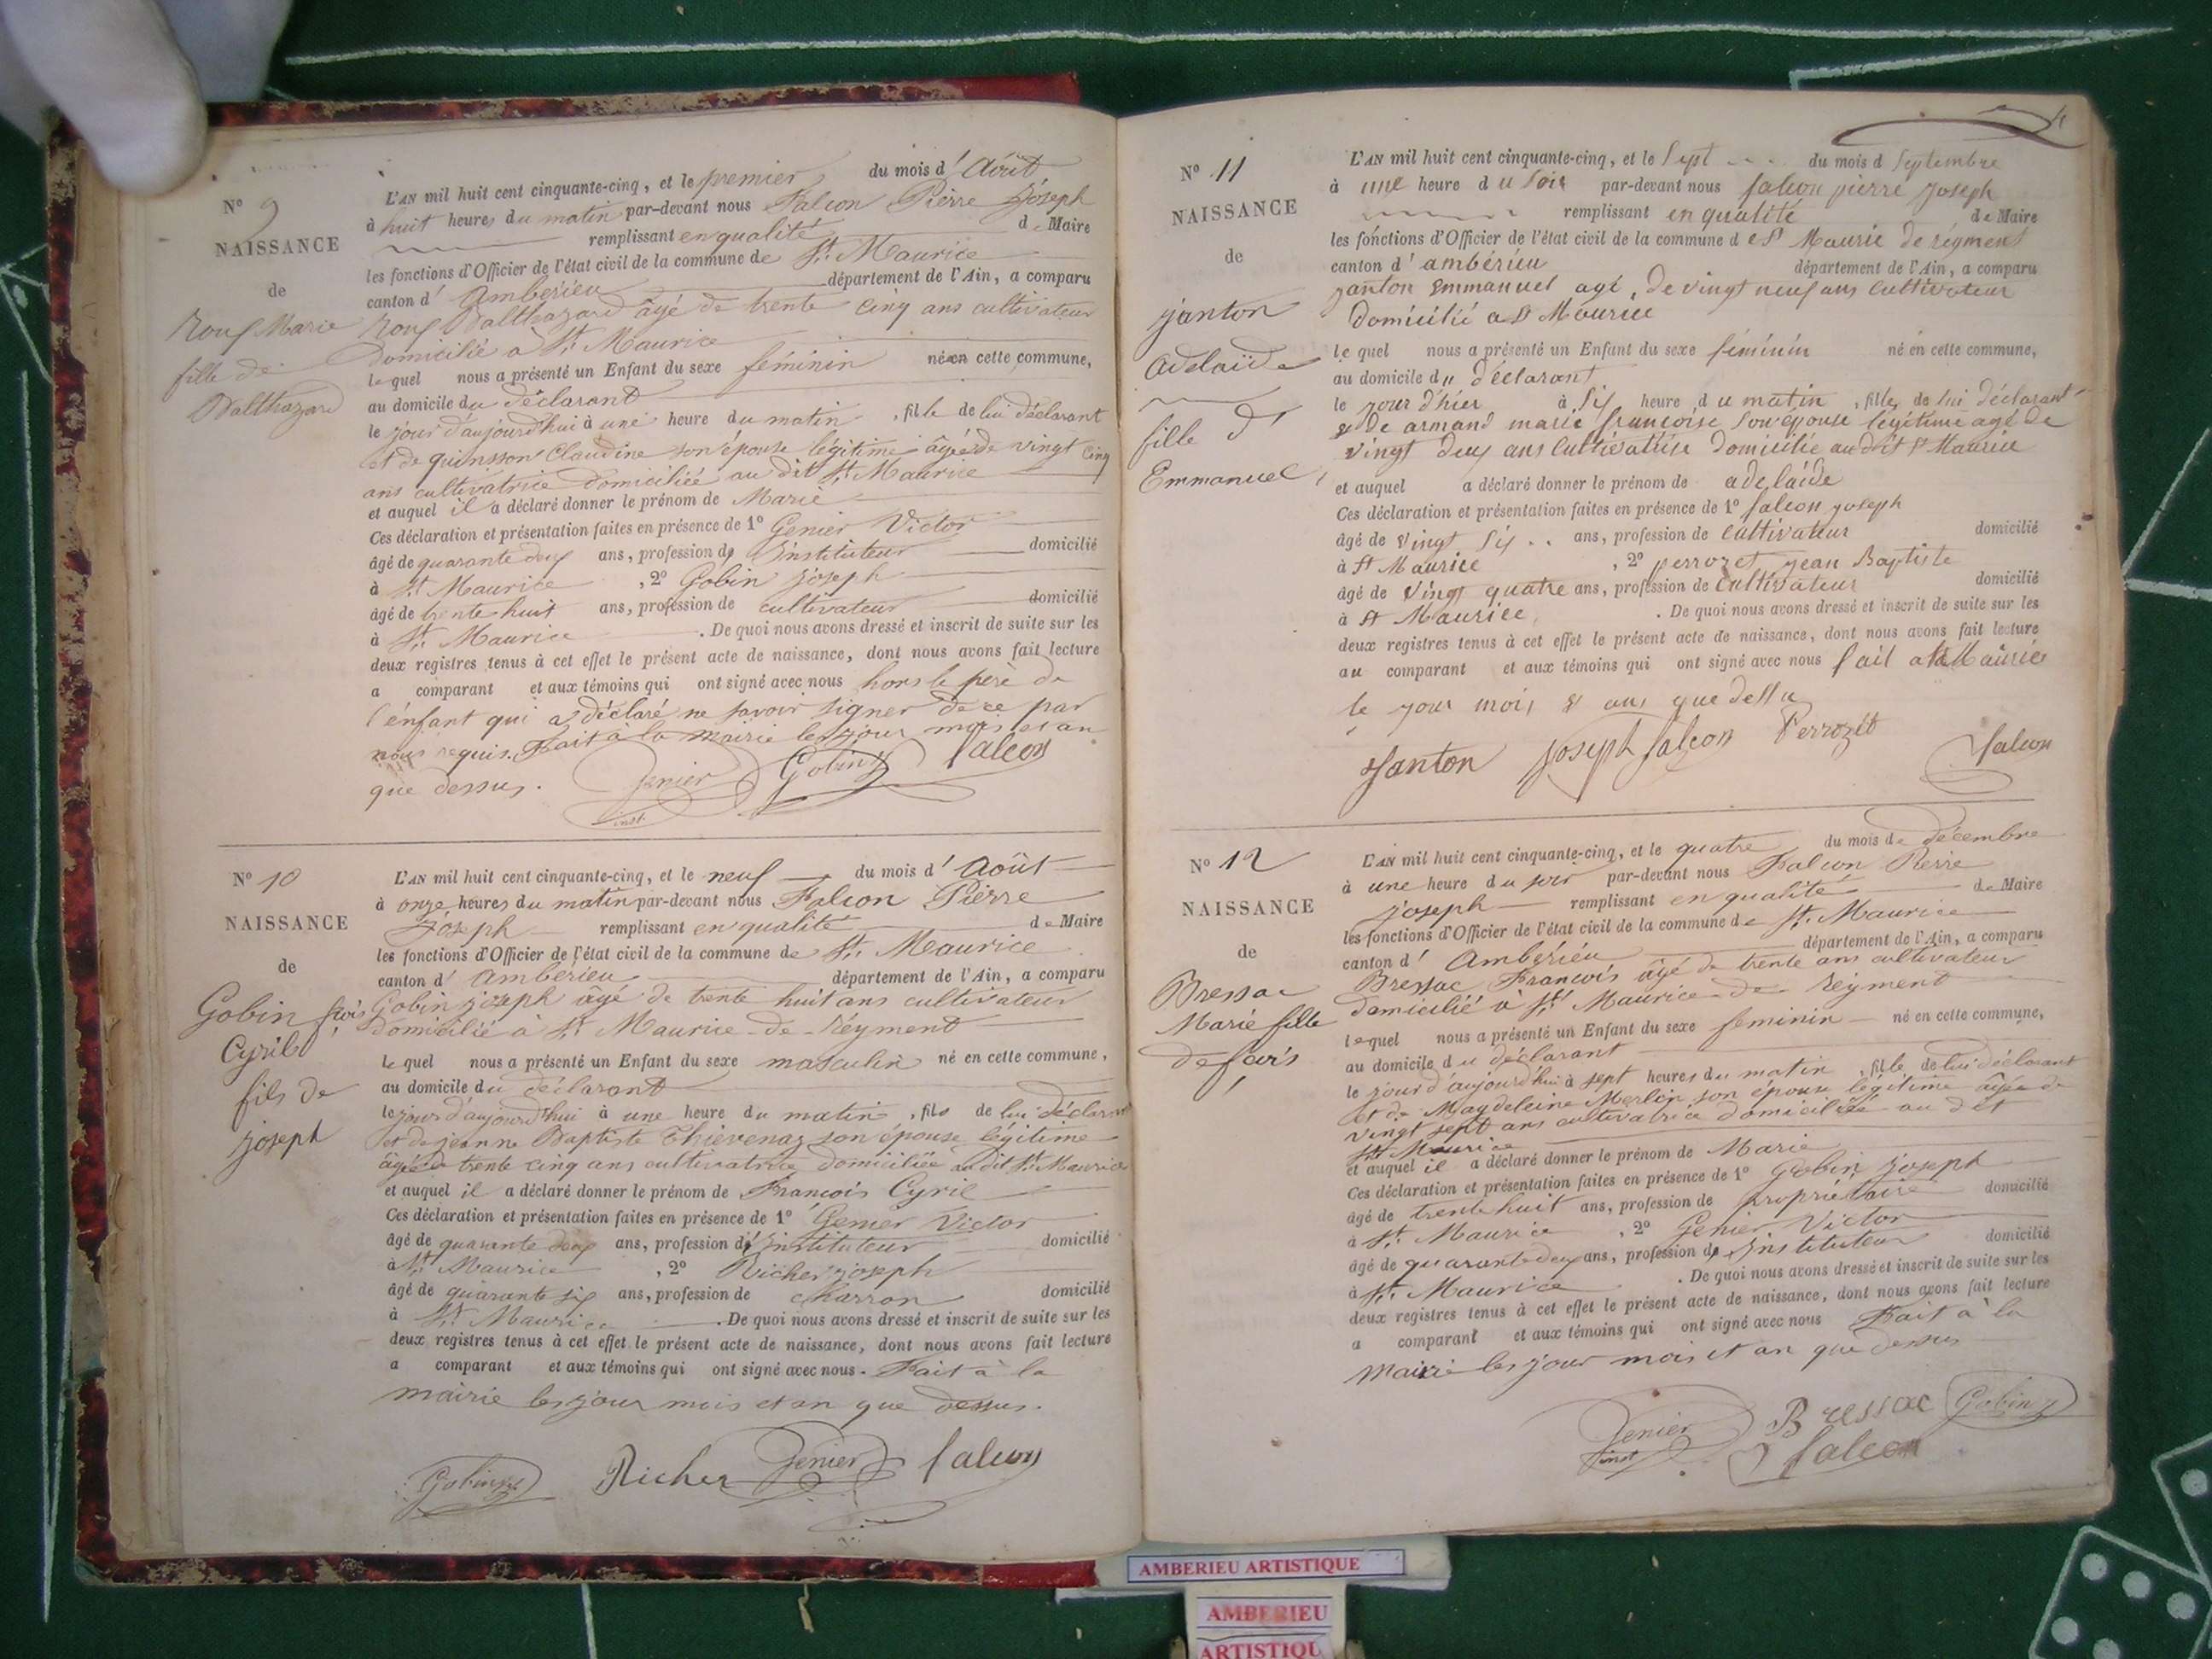 N° 9
NAISSANCE
de
Roux Marie
fille de
Balthazard
L'AN mil huit cent cinquante-cinq, et le premier du mois d'Août
à huit heures du matin par-devant nous Falcon Pierre Joseph
remplissant en qualité de Maire
les fonctions d'Officier de l'état civil de la commune de St. Maurice
canton d'Ambérieu département de l'Ain, a comparu
Roux Balthazard âgé de trente cinq ans cultivateur
domicilié à St. Maurice
lequel nous a présenté un Enfant du sexe féminin né en cette commune,
au domicile du déclarant
le jour d'aujourd'hui à une heure du matin, fille de lui déclarant
et de quinsson Claudine son épouse légitime âgée de vingt cinq
ans cultivatrice domiciliée au dit St. Maurice
et auquel il a déclaré donner le prénom de Marie
Ces déclaration et présentation faites en présence de 1° Genier Victor
âgé de quarante deux ans, profession d'Instituteur domicilié
à St. Maurice, 2° Gobin Joseph
âgé de trente huit ans, profession de cultivateur domicilié
à St. Maurice. De quoi nous avons dressé et inscrit de suite sur les
deux registres tenus à cet effet le présent acte de naissance, dont nous avons fait lecture
a comparant et aux témoins qui ont signé avec nous hors le père de
l'énfant qui a déclaré ne savoir signer de ce par
nous requis. Fait à la mairie les jour mois et an
que dessus.
Genier Gobin falcon
inst
N° 10
NAISSANCE
de
Gobin frois
Cyril
fils de
joseph
L'AN mil huit cent cinquante-cinq, et le neuf du mois d'Août
à onze heures du matin par-devant nous Falcon Pierre
Joseph remplissant en qualité de Maire
les fonctions d'Officier de l'état civil de la commune de St. Maurice
canton d'Ambérieu département de l'Ain, a comparu
Gobin joseph âgé de trente huit ans cultivateur
domicilié à St Maurice-de-Réyment
lequel nous a présenté un Enfant du sexe masculin né en cette commune,
au domicile du déclarant
le jour d'aujourd'hui à une heure du matin, fils de lui déclarant
et de jeanne Baptiste Thievenaz son épouse légitime
âgée de trente cinq ans cultivatrice domiciliée au dit St. Maurice
et auquel il a déclaré donner le prénom de François Cyril
Ces déclaration et présentation faites en présence de 1° Genier Victor
âgé de quarante deux ans, profession d'Instituteur domicilié
à St. Maurice, 2° Richer joseph
âgé de quarante six ans, profession de charron domicilié
à St. Maurice. De quoi nous avons dressé et inscrit de suite sur les
deux registres tenus à cet effet le présent acte de naissance, dont nous avons fait lecture
a comparant et aux témoins qui ont signé avec nous. Fait à la
mairie les jour mois et an que dessus.
Gobin Richer Genier falcon
N° 11
NAISSANCE
de
janton
adelaïde
fille d'
Emmanuel
L'AN mil huit cent cinquante-cinq, et le sept du mois d septembre
à une heure du soir par-devant nous falcon pierre joseph
remplissant en qualité de Maire
les fonctions d'Officier de l'état civil de la commune de St Maurie de régment
canton d'ambérieu département de l'Ain, a comparu
janton emmanuel agé, de vingt neuf ans cultivateur
domicilié a St Maurice
lequel nous a présenté un Enfant du sexe féminin né en cette commune,
au domicile du déclarant
le jour d'hier à six heure du matin, fille, de lui déclarant
& de armand marie françoise son épouse légitime agé de
vingt deux ans cultivatrise domicilié au dit St Maurice
et auquel a déclaré donner le prénom de adelaïde
Ces déclaration et présentation faites en présence de 1° falcon joseph
âgé de vingt six ans, profession de cultivateur domicilié
à St Maurice, 2° perrozet jean Baptiste
âgé de vingt quatre ans, profession de cultivateur domicilié
à St Maurice. De quoi nous avons dressé et inscrit de suite sur les
deux registres tenus à cet effet le présent acte de naissance, dont nous avons fait lecture
au comparant et aux témoins qui ont signé avec nous fait a St Maurice
le jour mois & ans que dessu
Janton joseph falcon Perrozet falcon
N° 12
NAISSANCE
de
Bressac
Marie fille
de frois
L'AN mil huit cent cinquante-cinq, et le quatre du mois de décembre
à une heure du soir par-devant nous Falcon Pierre
joseph remplissant en qualité de Maire
les fonctions d'Officier de l'état civil de la commune de St. Maurice
canton d'Ambérieu département de l'Ain, a comparu
Bressac François âgé de trente ans cultivateur
domicilié à St. Maurice-de-Réyment
lequel nous a présenté un Enfant du sexe feminin né en cette commune,
au domicile du déclarant
le jour d'aujourd'hui à sept heures du matin, fille de lui déclarant
et de Magdeleine Merlin son épouse légitime âgée de
vingt sept ans cultivatrice domiciliée au dit
St. Maurice
et auquel il a déclaré donner le prénom de Marie
Ces déclaration et présentation faites en présence de 1° Gobin Joseph
âgé de trente huit ans, profession de propriétaire domicilié
à St. Maurice, 2° Genier Victor
âgé de quarante deux ans, profession d'Instituteur domicilié
à St. Maurice. De quoi nous avons dressé et inscrit de suite sur les
deux registres tenus à cet effet le présent acte de naissance, dont nous avons fait lecture
a comparant et aux témoins qui ont signé avec nous Fait à la
Mairie les jour mois et an que dessus
Genier Bressac Gobin
inst falcon
AMBERIEU ARTISTIQUE
AMBERIEU
ARTISTIQU